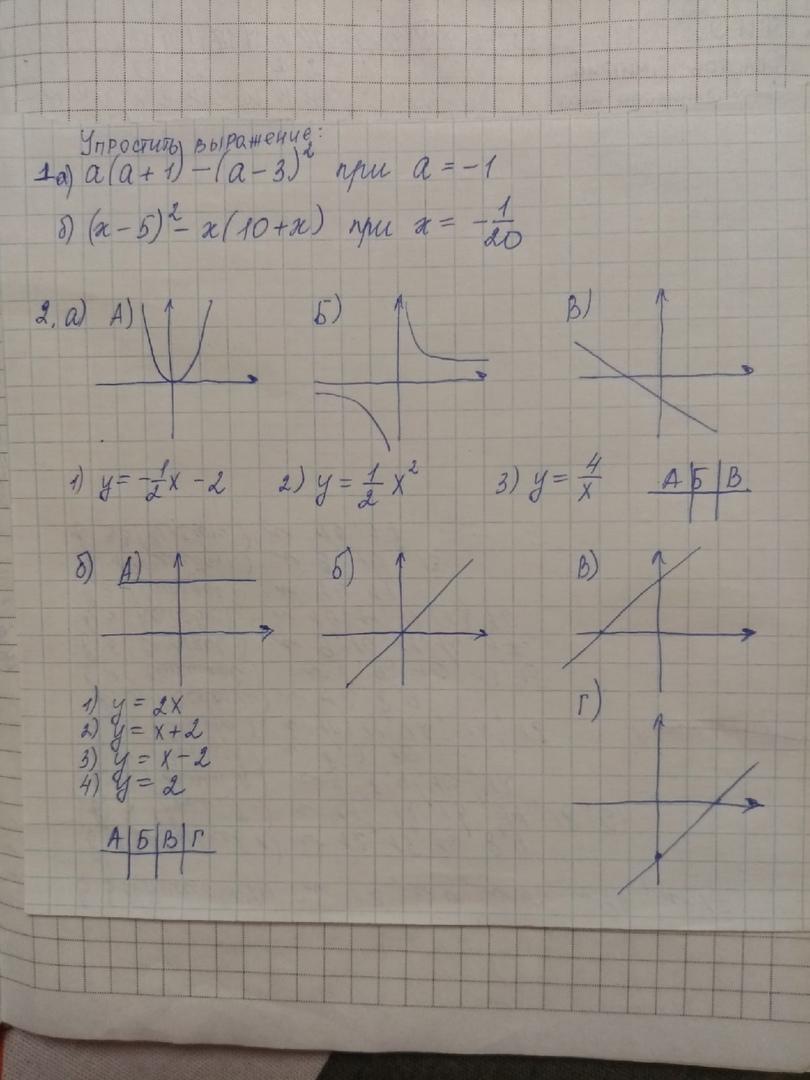 Упростить выражение:
1а) a(a+1)-(a-3)² при a=-1
б) (x-5)²-x(10+x) при x=-1/20
2. а) А) Б) В)
1) y=-1/2x-2 2) y=1/2x² 3) y=4/x А|Б|В
б) А) б) В)
Г)
1) y=2x
2) y=x+2
3) y=x-2
4) y=2
А|Б|В|Г